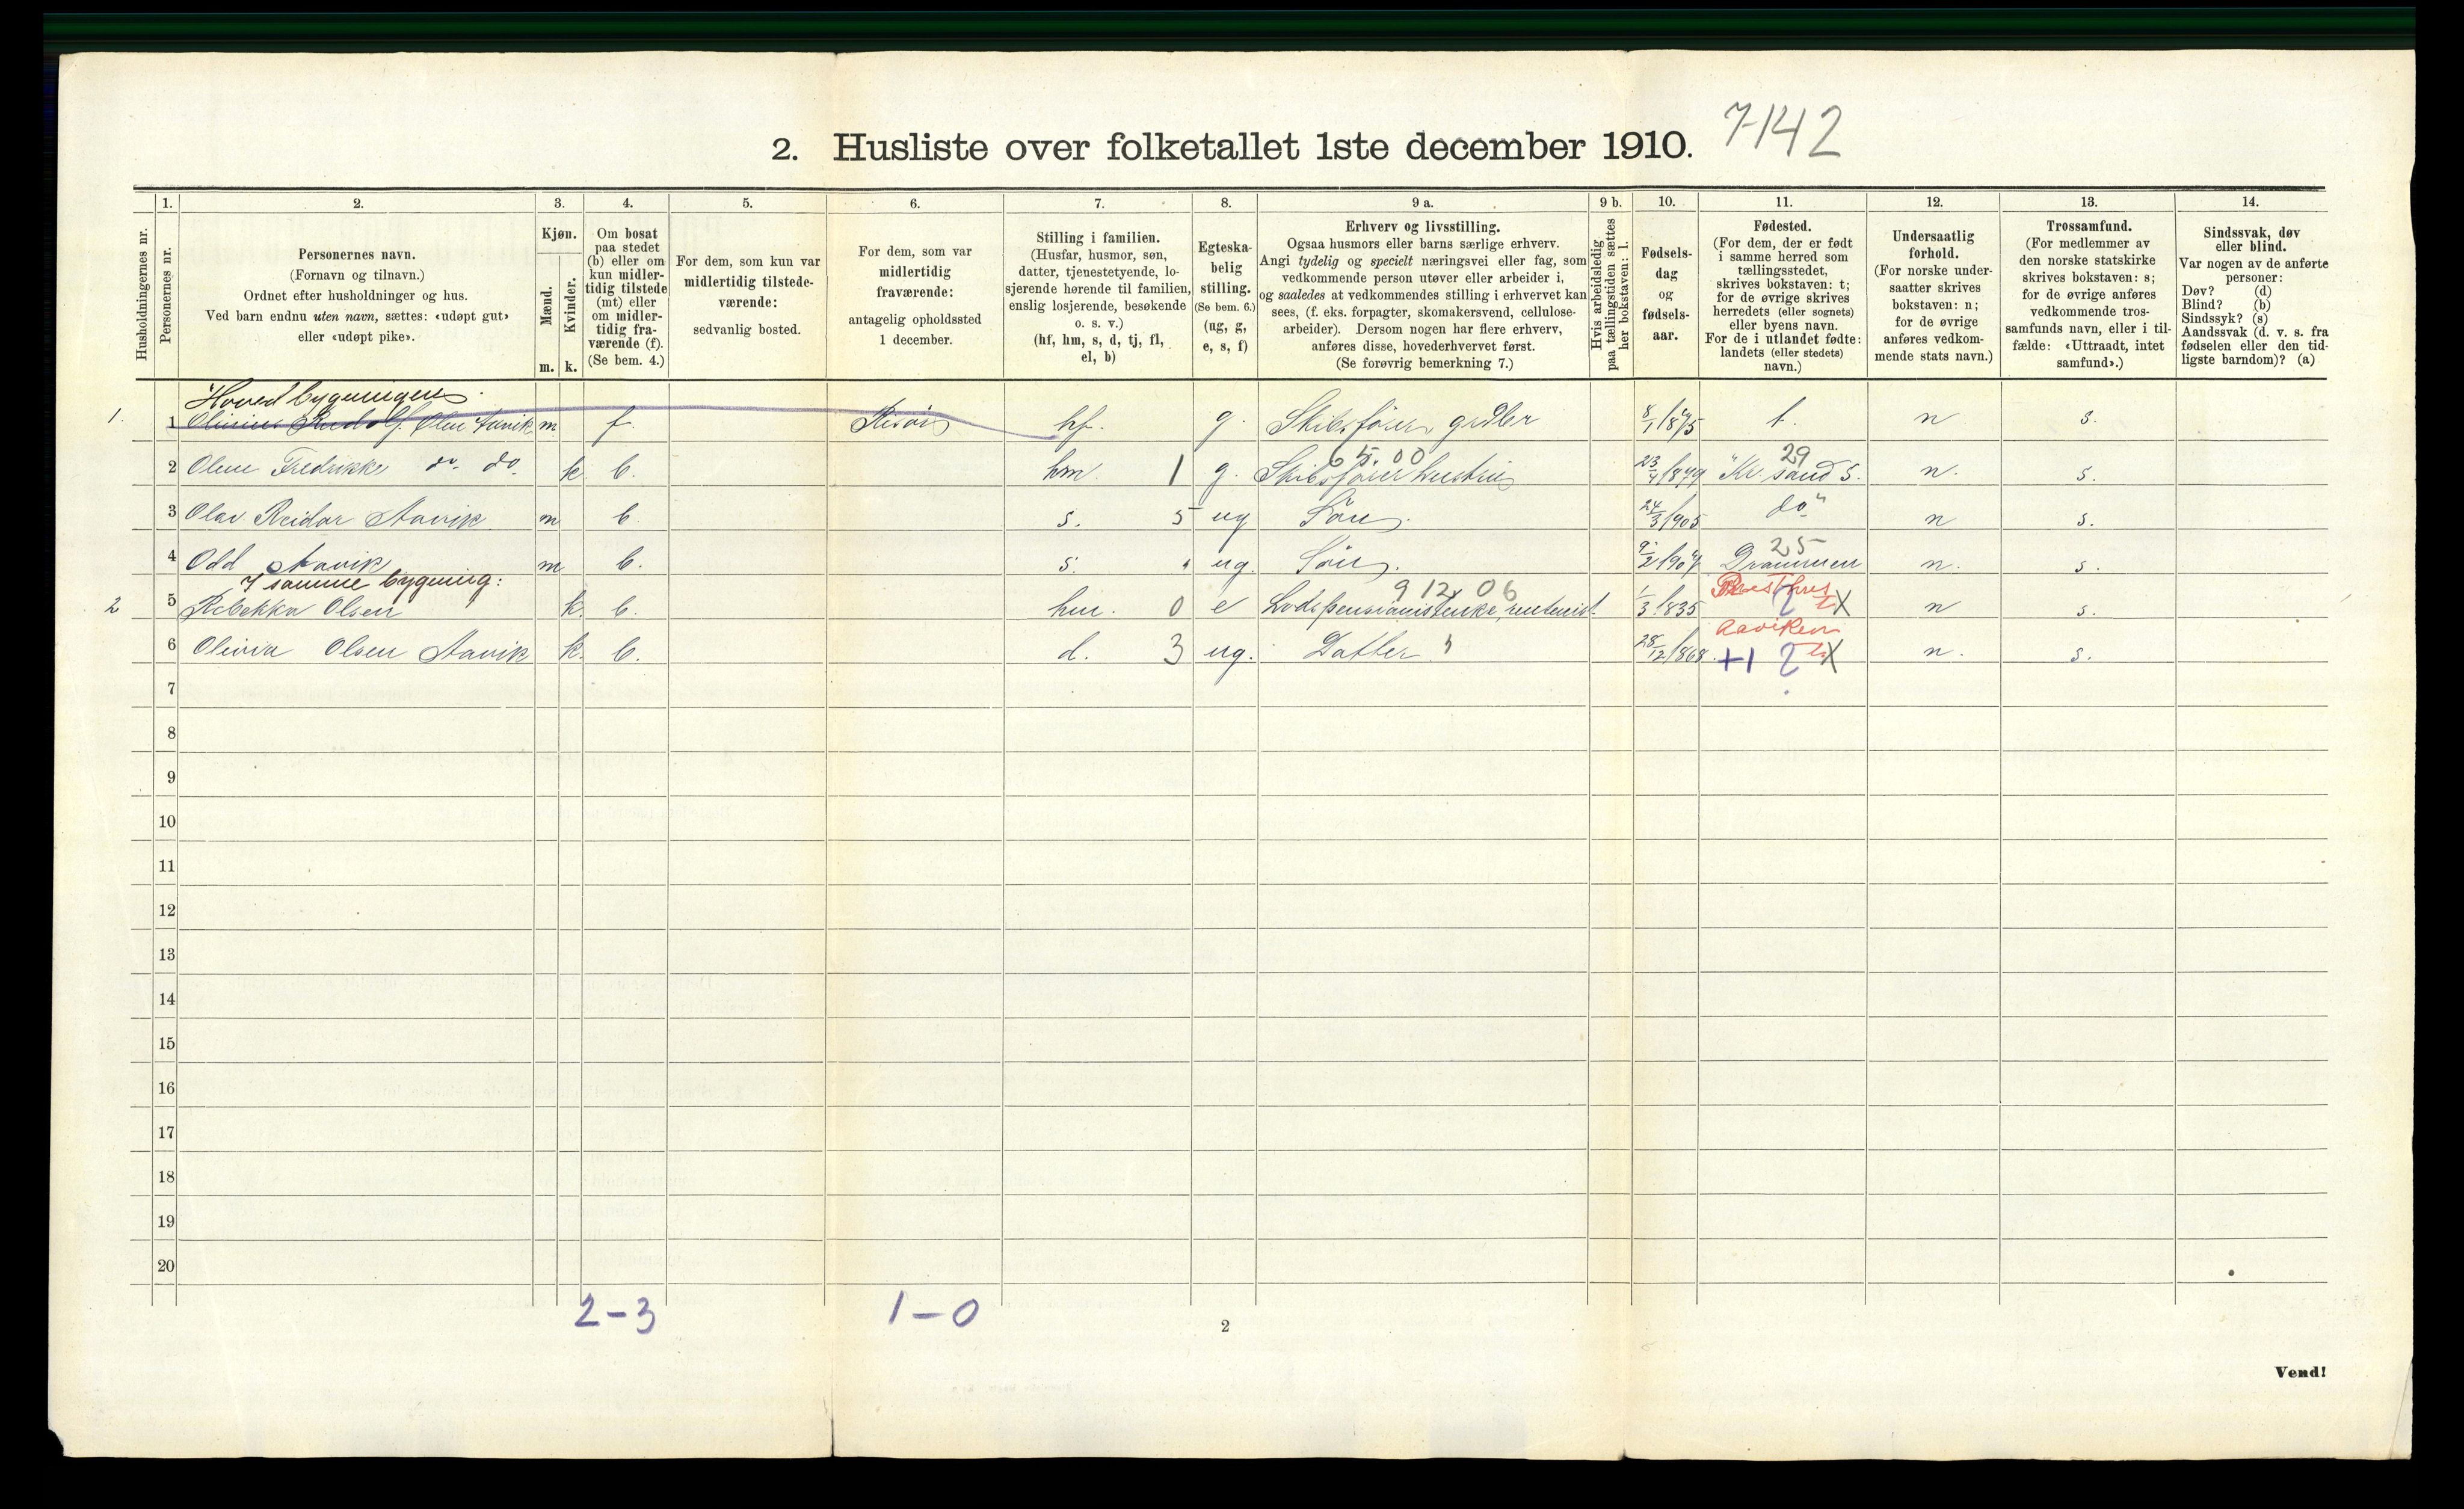 2. Husliste over folketallet 1ste december 1910. 7-142
Husholdningernes nr.
1.
Personernes nr.
2.
Personernes navn.
(Fornavn og tilnavn.)
Ordnet efter husholdninger og hus.
Ved barn endnu uten navn, sættes: «udøpt gut»
eller «udøpt pike».
3.
Kjøn.
Mænd.
Kvinder.
m. k.
4.
Om bosat
paa stedet
(b) eller om
kun midler-
tidig tilstede
(mt) eller
om midler-
tidig fra-
værende (f).
(Se bem. 4.)
5.
For dem, som kun var
midlertidig tilstede-
værende:
sedvanlig bosted.
6.
For dem, som var
midlertidig
fraværende:
antagelig opholdssted
1 december.
7.
Stilling i familien.
(Husfar, husmor, søn,
datter, tjenestetyende, lo-
sjerende hørende til familien,
enslig losjerende, besøkende
o. s. v.)
(hf, hm, s, d, tj, fl,
el, b)
8.
Egteska-
belig
stilling.
(Se bem. 6.)
(ug, g,
e, s, f)
9 a.
Erhverv og livsstilling.
Ogsaa husmors eller barns særlige erhverv.
Angi tydelig og specielt næringsvei eller fag, som
vedkommende person utøver eller arbeider i,
og saaledes at vedkommendes stilling i erhvervet kan
sees, (f. eks. forpagter, skomakersvend, cellulose-
arbeider). Dersom nogen har flere erhverv,
anføres disse, hovederhvervet først.
(Se forøvrig bemerkning 7.)
9 b.
Hvis arbeidsledig
paa tællingstiden sættes
her bokstaven: l.
10.
Fødsels-
dag
og
fødsels-
aar.
11.
Fødested.
(For dem, der er født
i samme herred som
tællingsstedet,
skrives bokstaven: t;
for de øvrige skrives
herredets (eller sognets)
eller byens navn.
For de i utlandet fødte:
landets (eller stedets)
navn.)
12.
Undersaatlig
forhold.
(For norske under-
saatter skrives
bokstaven: n;
for de øvrige
anføres vedkom-
mende stats navn.)
13.
Trossamfund.
(For medlemmer av
den norske statskirke
skrives bokstaven: s;
for de øvrige anføres
vedkommende tros-
samfunds navn, eller i til-
fælde: «Uttraadt, intet
samfund».)
14.
Sindssvak, døv
eller blind.
Var nogen av de anførte
personer:
Døv? (d)
Blind? (b)
Sindssyk? (s)
Aandssvak (d. v. s. fra
fødselen eller den tid-
ligste barndom)? (a)
Hovedbygningen.
1. 1 Rudolf Olsen Aavik m f. Risør hf. g. Skibsfører 8/1 1875 t. n s.
65.00 29
2 Oline Fredrikke do. do. k b. hm. 1 g. Skibsførerhustru 23/4 1879 "Kr.sand S. n. s.
3 Olav Reidar Aavik m b. s. 5 ug Søn. 24/3 1905 do" n s.
25
4 Odd Aavik m b. s. " ug. Søn. 9/2 1907 Drammen n. s.
I samme bygning: 9 12. 06 Presthus
2 5 Rebekka Olsen k. b. hm. 0 e Lodspensionistenke, 1/3 1835 t X n s.
Aaviken
6 Olivia Olsen Aavik k. b. d. 3 ug. Datter " 28/12 1868. +1 2 t X n. s.
7
8
9
10
11
12
13
14
15
16
17
18
19
20
2-3 1-0
2
Vend!